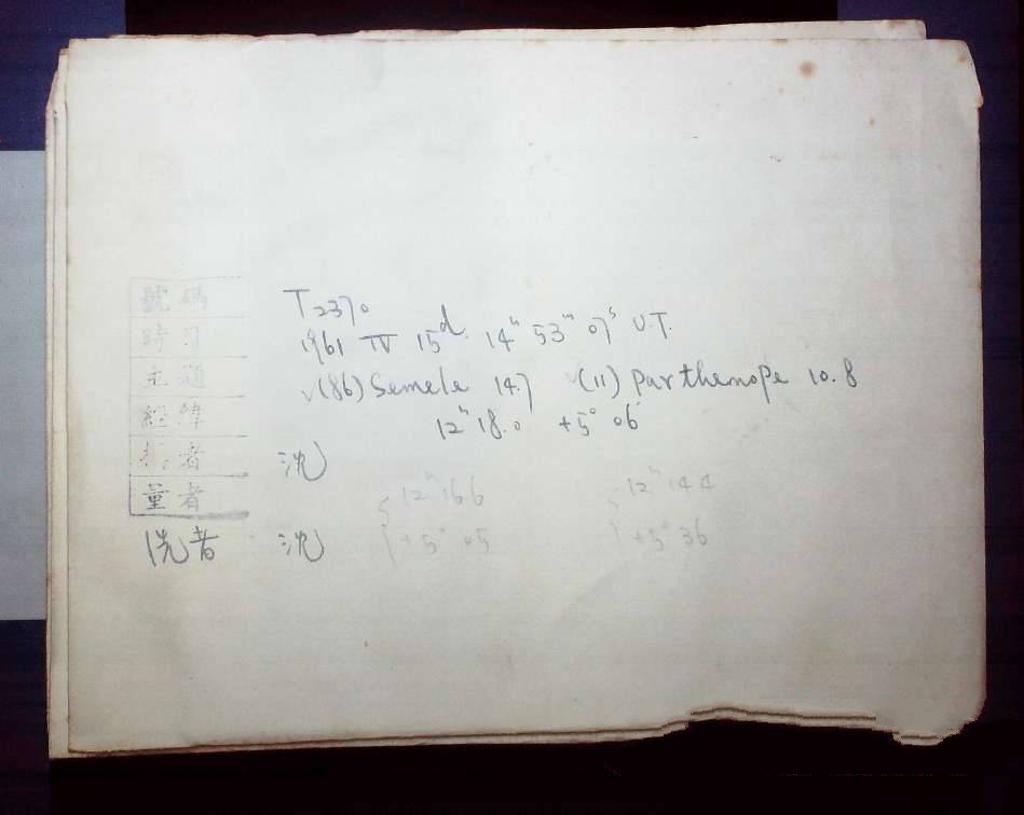 號碼 T2370
時刻 1961 IV 15d 14h 53m 07s U.T.
主題 √(86) Semele 14.7 √(11) Parthenope 10.8
經緯 12h 18.0 +5° 06'
攝者 沈
量者 12h 16.6 12h 14.4
洗者 沈 +5° 05 +5° 36